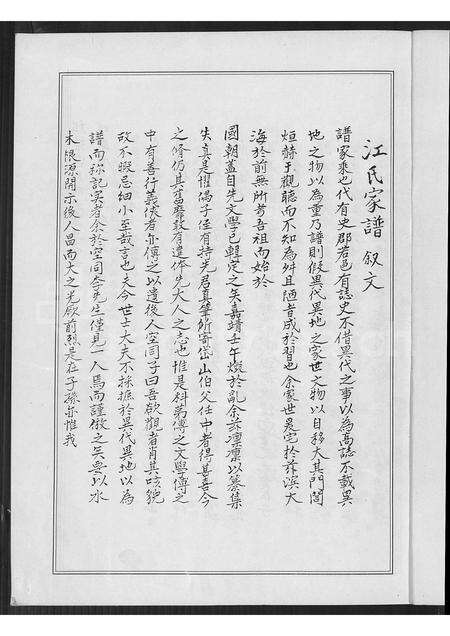 江氏家譜 叙文
譜家乘也代有史郡若邑有誌史不借異代之事以為高誌不載異
地之物以為重乃譜則假異代異地之家世文物以自移大其門閥
烜赫于觀聽而不知為舛且陋者成於習也余家世晁宅於茲濱大
海於前無所考吾祖而始於
國朝蓋自先文學已輯定之矣嘉靖壬午燬於亂余茲凛凛以纂集
失真是惧偶子侄有持先君真筆所寄岱山伯父任中者得甚喜今
之脩仍其舊釐敢有遺佈先大人之志也惟是科第傳之文學傳之
中有善行義俠者亦傳之以遺後人空同子曰吾欲觀者肖其咳貌
故不暇忌細小至哉言也夫今世士大夫不採摭於異代異地以為
譜而称記吳者余於空同李先生僅見一人焉而謹倣之矣要以水
木限源開示後人昌而大之光啟前烈是在子孫亦惟我